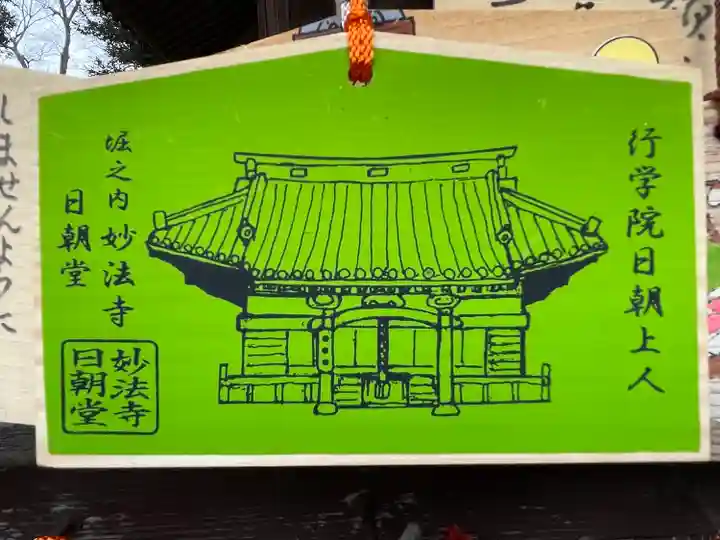 行学院日朝上人
堀之内妙法寺
日朝堂
妙法寺
日朝堂
しませんように